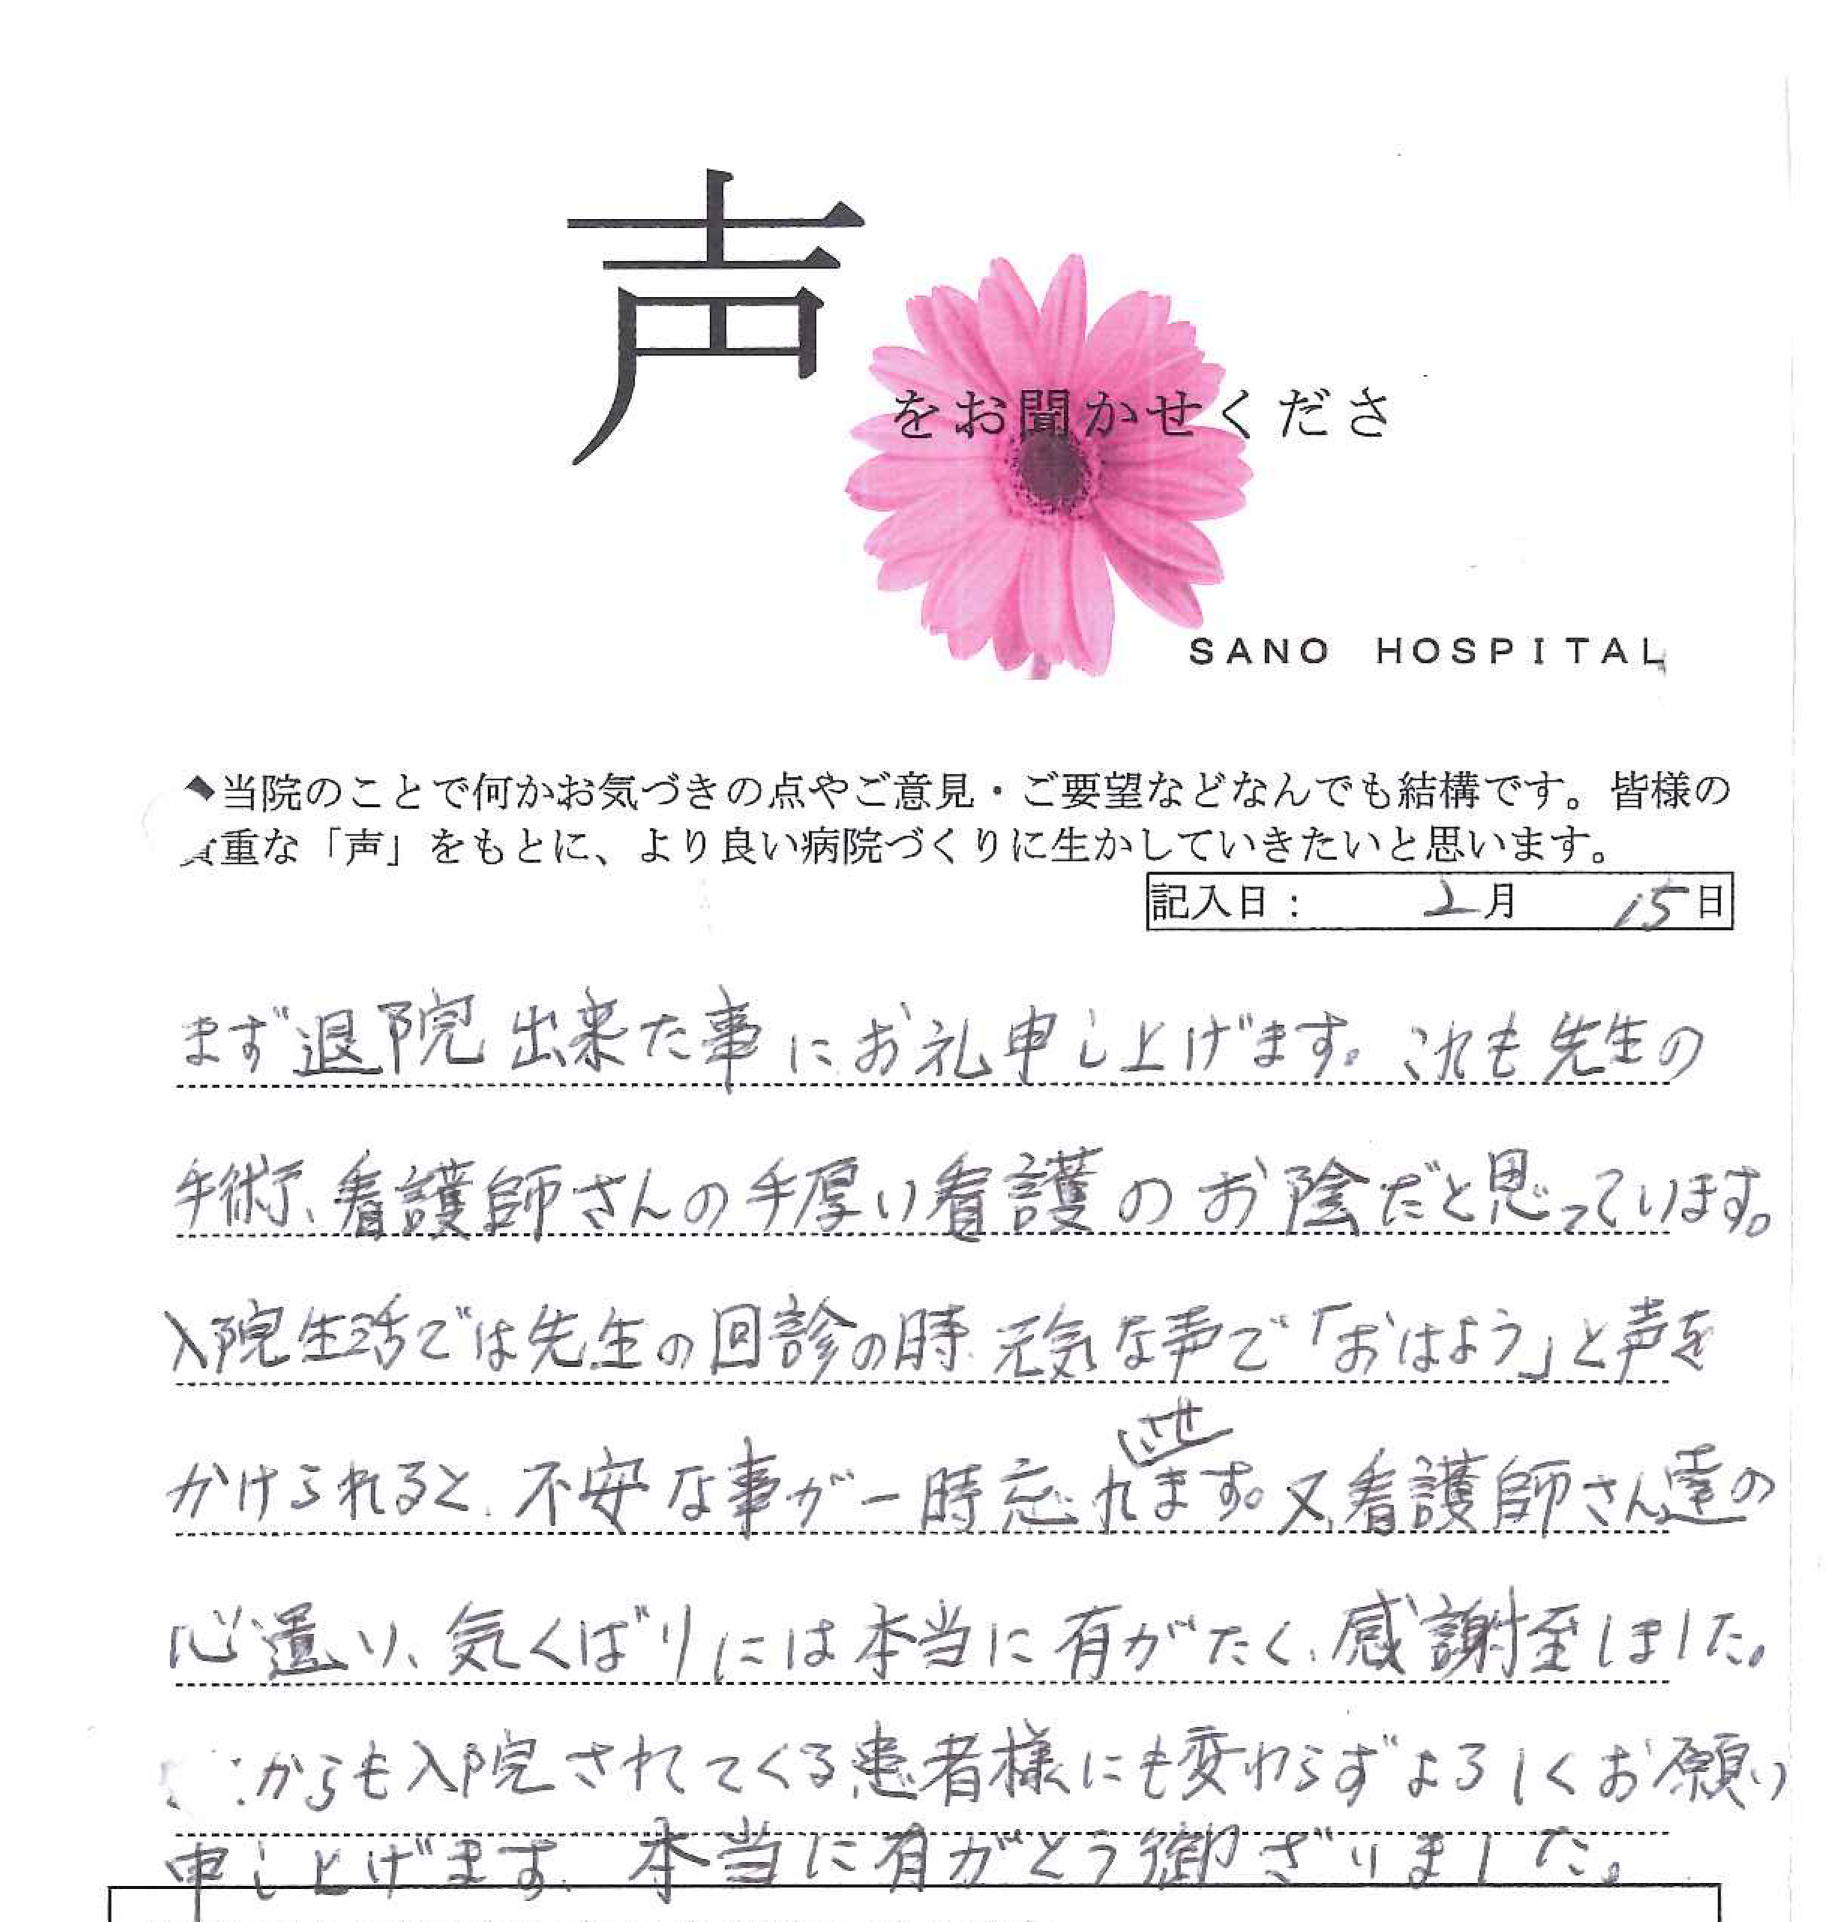 声
をお聞かせくださ
SANO HOSPITAL
◆当院のことで何かお気づきの点やご意見・ご要望などなんでも結構です。皆様の
貴重な「声」をもとに、より良い病院づくりに生かしていきたいと思います。
記入日： 2月 15日
まず退院出来た事にお礼申し上げます。これも先生の
手術、看護師さんの手厚い看護のお陰だと思っています。
入院生活では先生の回診の時、元気な声で「おはよう」と声を
かけられると、不安な事が一時忘れさせます。又、看護師さん達の
心遣い、気くばりには本当に有がたく、感謝至しました。
からも入院されてくる患者様にも変わらずよろしくお願い
申し上げます。本当に有がとう御ざいました。